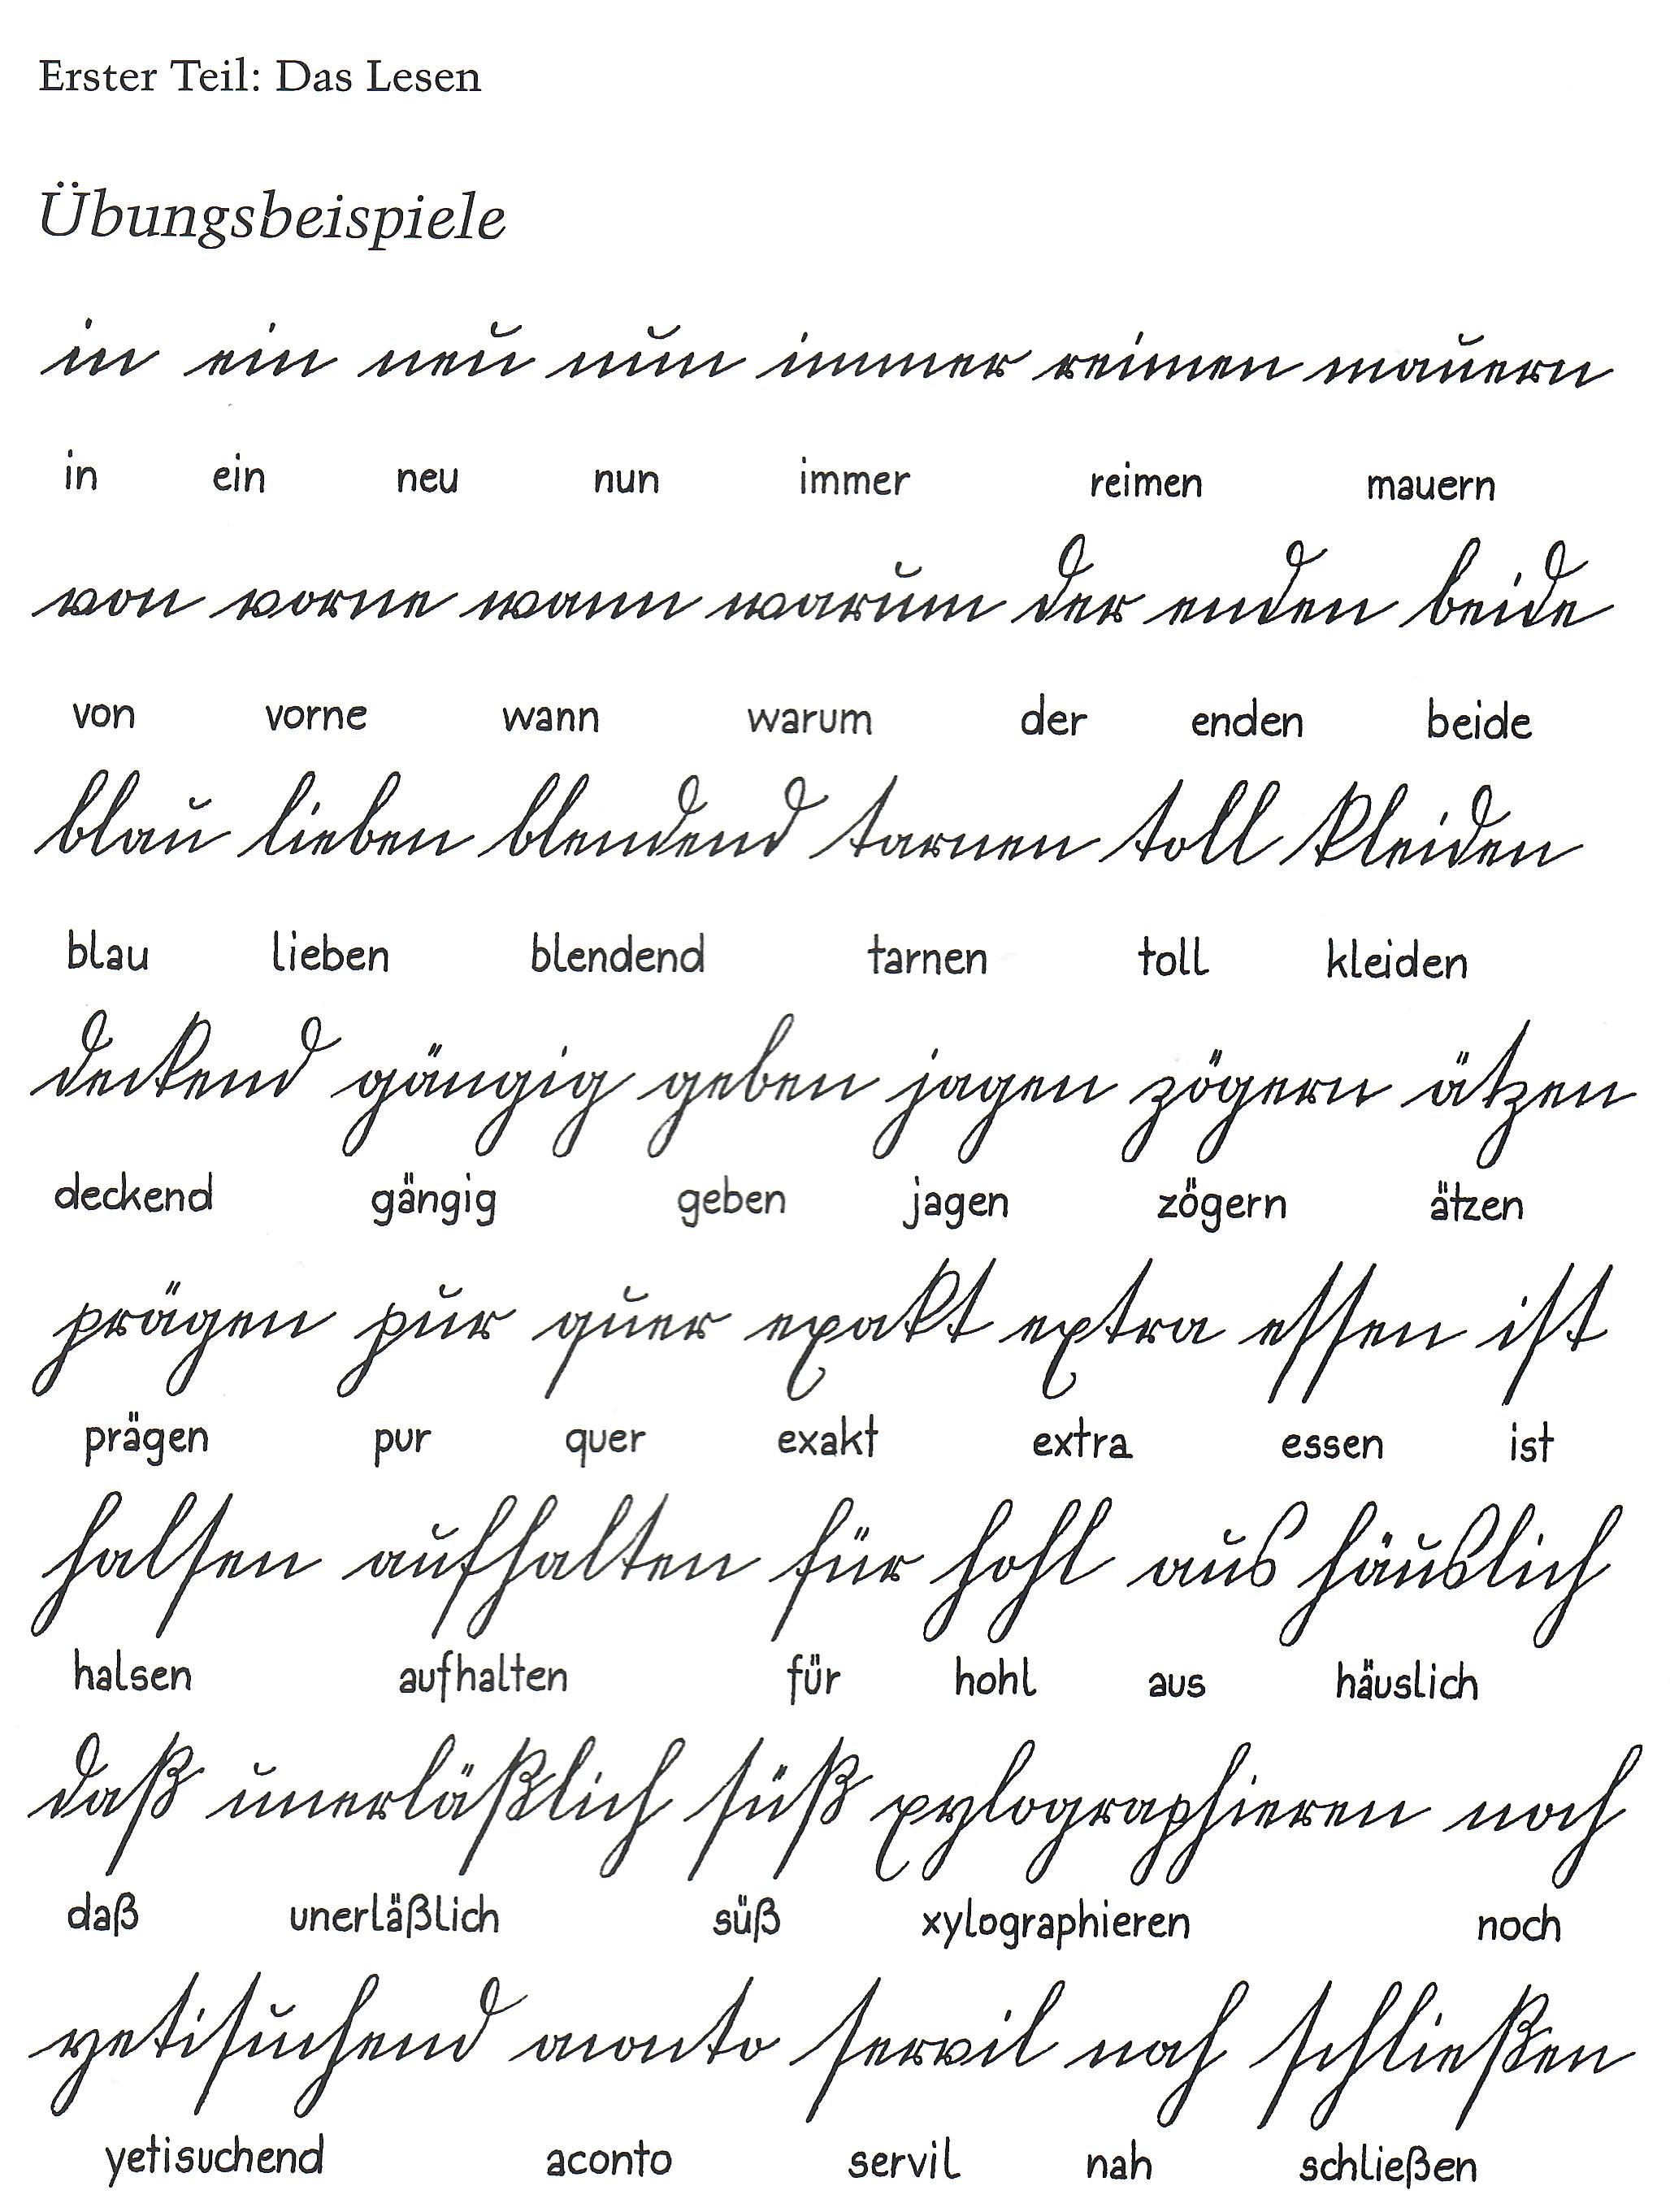 Erster Teil: Das Lesen
Übungsbeispiele
in ein neu nun immer reimen mauern
in ein neu nun immer reimen mauern
von vorne wann warum der enden beide
von vorne wann warum der enden beide
blau lieben blendend tarnen toll kleiden
blau lieben blendend tarnen toll kleiden
deckend gängig geben jagen zögern ätzen
deckend gängig geben jagen zögern ätzen
prägen pur quer exakt extra essen ist
prägen pur quer exakt extra essen ist
halsen aufhalten für hohl aus häuslich
halsen aufhalten für hohl aus häuslich
daß unerläßlich süß xylographieren noch
daß unerläßlich süß xylographieren noch
yetisuchend aconto servil nah schließen
yetisuchend aconto servil nah schließen